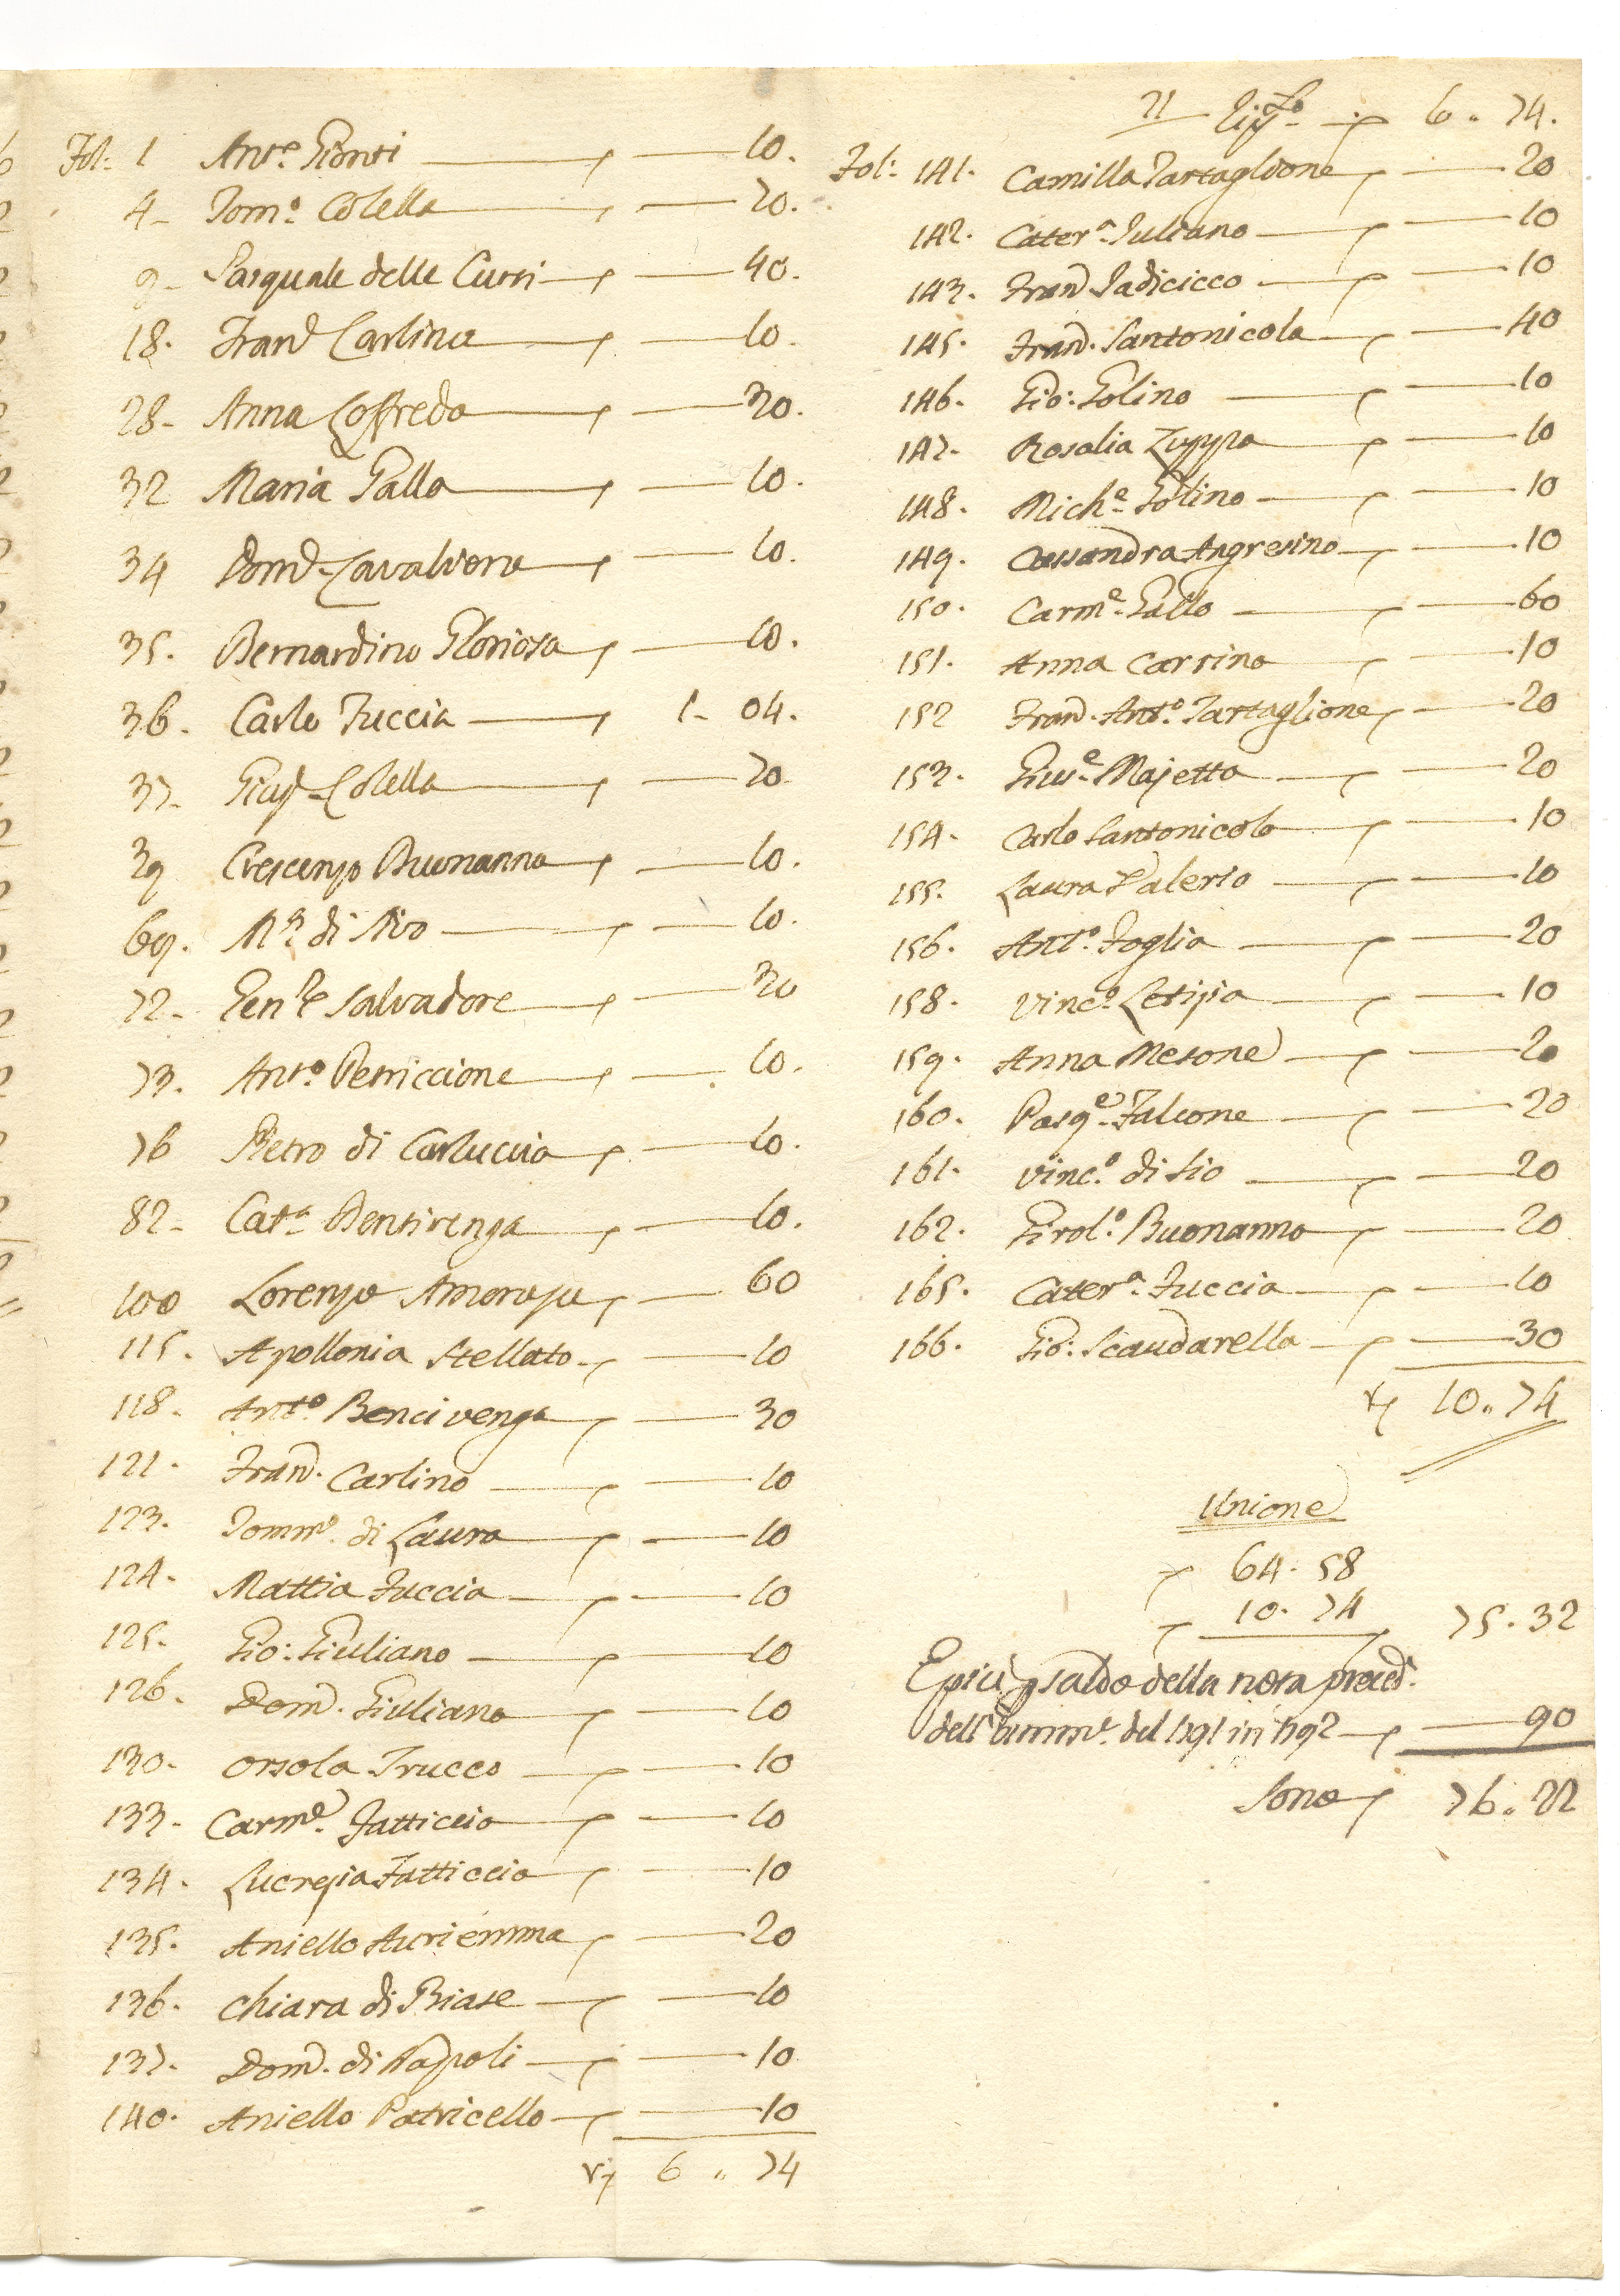 Fol: 1 Ant.o Gionti 10.
4 Dom.o Colella 20.
9 Pasquale delle Curti 40.
18. Fran.o Carlino 10.
28 Anna Loffredo 30.
32 Maria Gallo 10.
34 Dom.o Cavaliero 10.
35. Bernardino Gloriosa 10.
36. Carlo Tuccia 1 04.
37 Gius.e Colella 20
39 Crescenzo Buonanno 10.
69. M.a di Nivo 10.
72 Gen.o Salvadore 30
73. Ant.o Perriccione 10.
76 Pietro di Carluccio 10.
82 Cat.a Bentivenga 10.
100 Lorenzo Amoroso 60
115. Apollonia Stellato 10
118. Ant.o Bencivenga 30
121. Fran.o Carlino 10
123. Tomm.o di Laura 10
124. Mattia Tuccia 10
125. Gio: Giuliano 10
126. Dom.o Giuliano 10
130. Orsola Trucco 10
133. Carm.e Fatticcio 10
134. Lucrezia Fatticcio 10
135. Aniello Auriemma 20
136. Chiara di Biase 10
137. Dom.o di Napoli 10
140. Aniello Patricello 10
6 „ 74
6 „ 74.
Fol: 141. Camilla Tartaglione 20
142. Cater.a Iuliano 10
143. Fran.o Iadicicco 10
145. Fran.o Santonicola 40
146. Gio: Golino 10
147. Rosolia Zuppa 10
148. Mich.e Golino 10
149. Cassandra Angresino 10
150. Carm.e Gallo 60
151. Anna Carrino 10
152 Fran.o Ant.o Tartaglione 20
153. Gius.e Majetta 20
154. Carlo Santonicola 10
155. Laura Valerio 10
156. Ant.o Foglia 20
158. Vinc.o Letizia 10
159. Anna Mesone 20
160. Pasq.e Falcone 20
161. Vinc.o di Lio 20
162. Girol.o Buonanno 20
165. Cater.a Tuccia 10
166. Gio: Scaudarella 30
10 „ 74
Unione
64. 58
10. 74 75. 32
E più p saldo della nota preced.
dell'amm.e del 1791 in 1792 90
Sono 76. 22